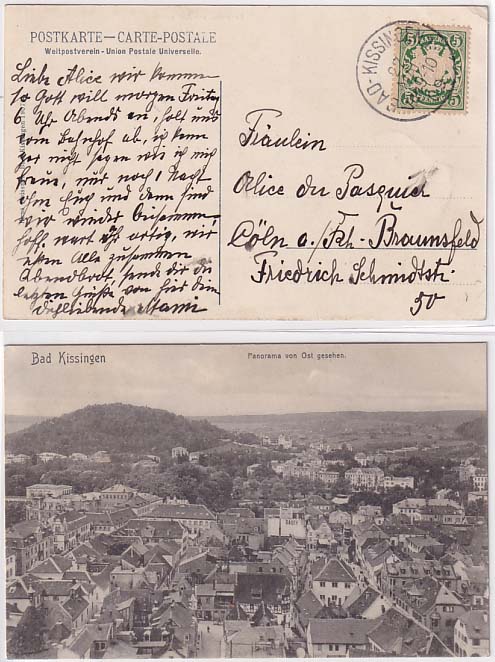 POSTKARTE—CARTE-POSTALE
Weltpostverein - Union Postale Universelle.
Liebe Alice wir kommen
so Gott will morgen Freitag
6 Uhr Abends an, holt uns
vom Bahnhof ab, ich kann
gar nicht sagen wie ich mich
freue, nur noch 1 Nacht
und dann sind
wir wieder zusammen
hoff. wart Ihr artig, wir
essen Alle zusammen
Abendbrot, send dir die
letzten Grüße von hier deine
dichliebende Mami
BAD-KISSINGEN
5 5
Fräulein
Alice du Pasquier
Cöln a./Rh.-Braunsfeld
Friedrich Schmidtstr.
50
Bad Kissingen
Panorama von Ost gesehen.